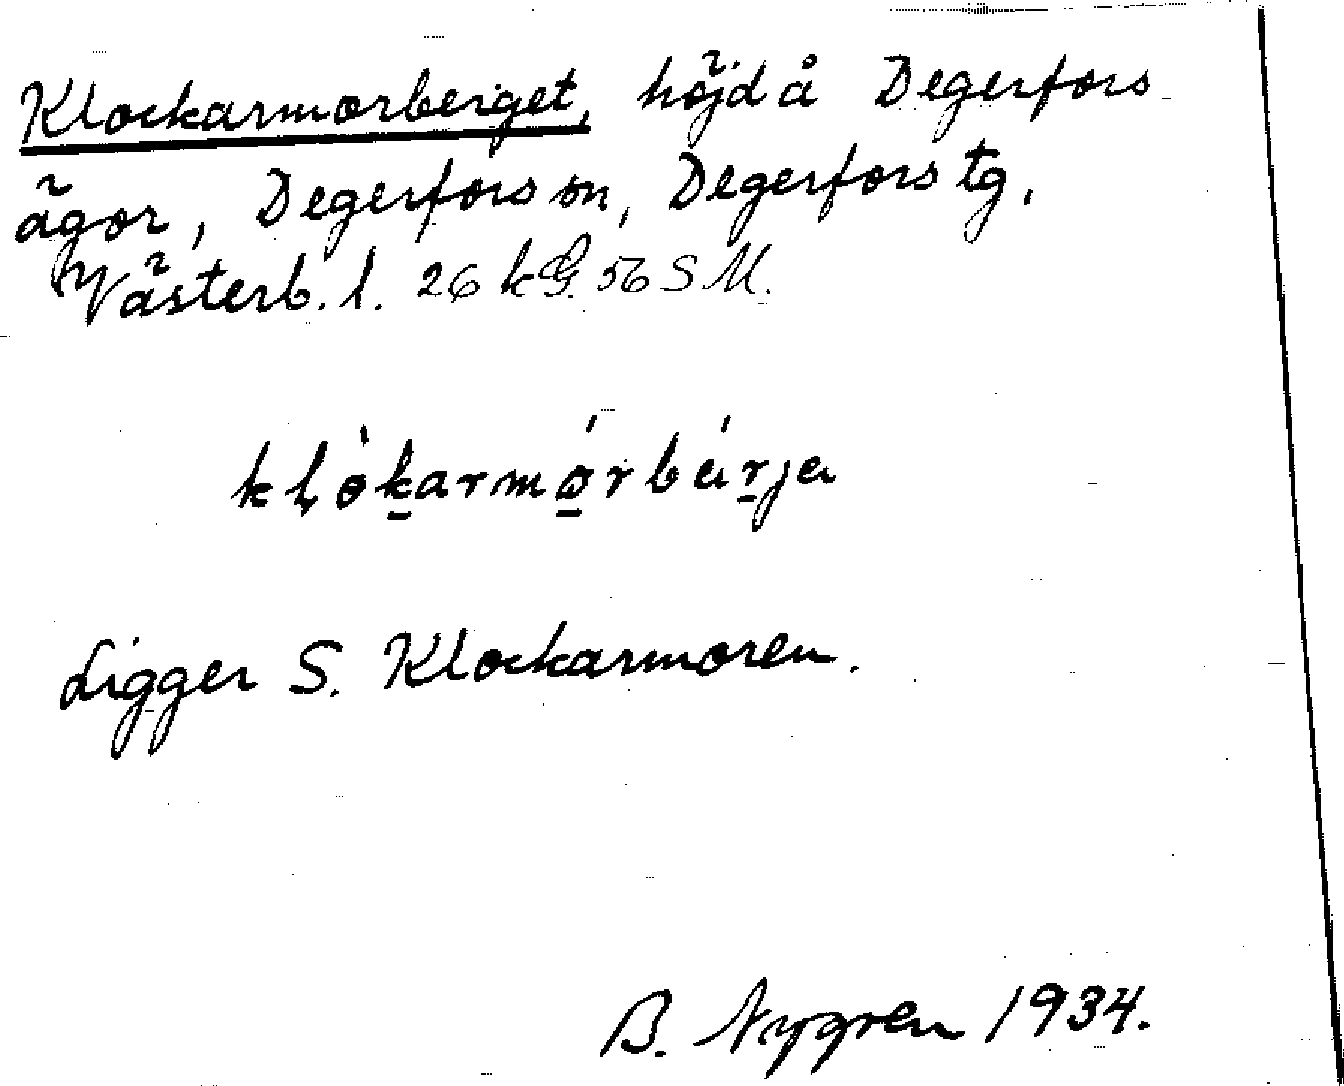 Klockarmorberget, höjd å Degerfors
ägor, Degerfors sn, Degerfors tg,
Västerb. l. 26 k G. 56 S M.
kḷò̱ḵarmó̱rbáṟja
Ligger S. Klockarmoren.
B. Nygren 1934.